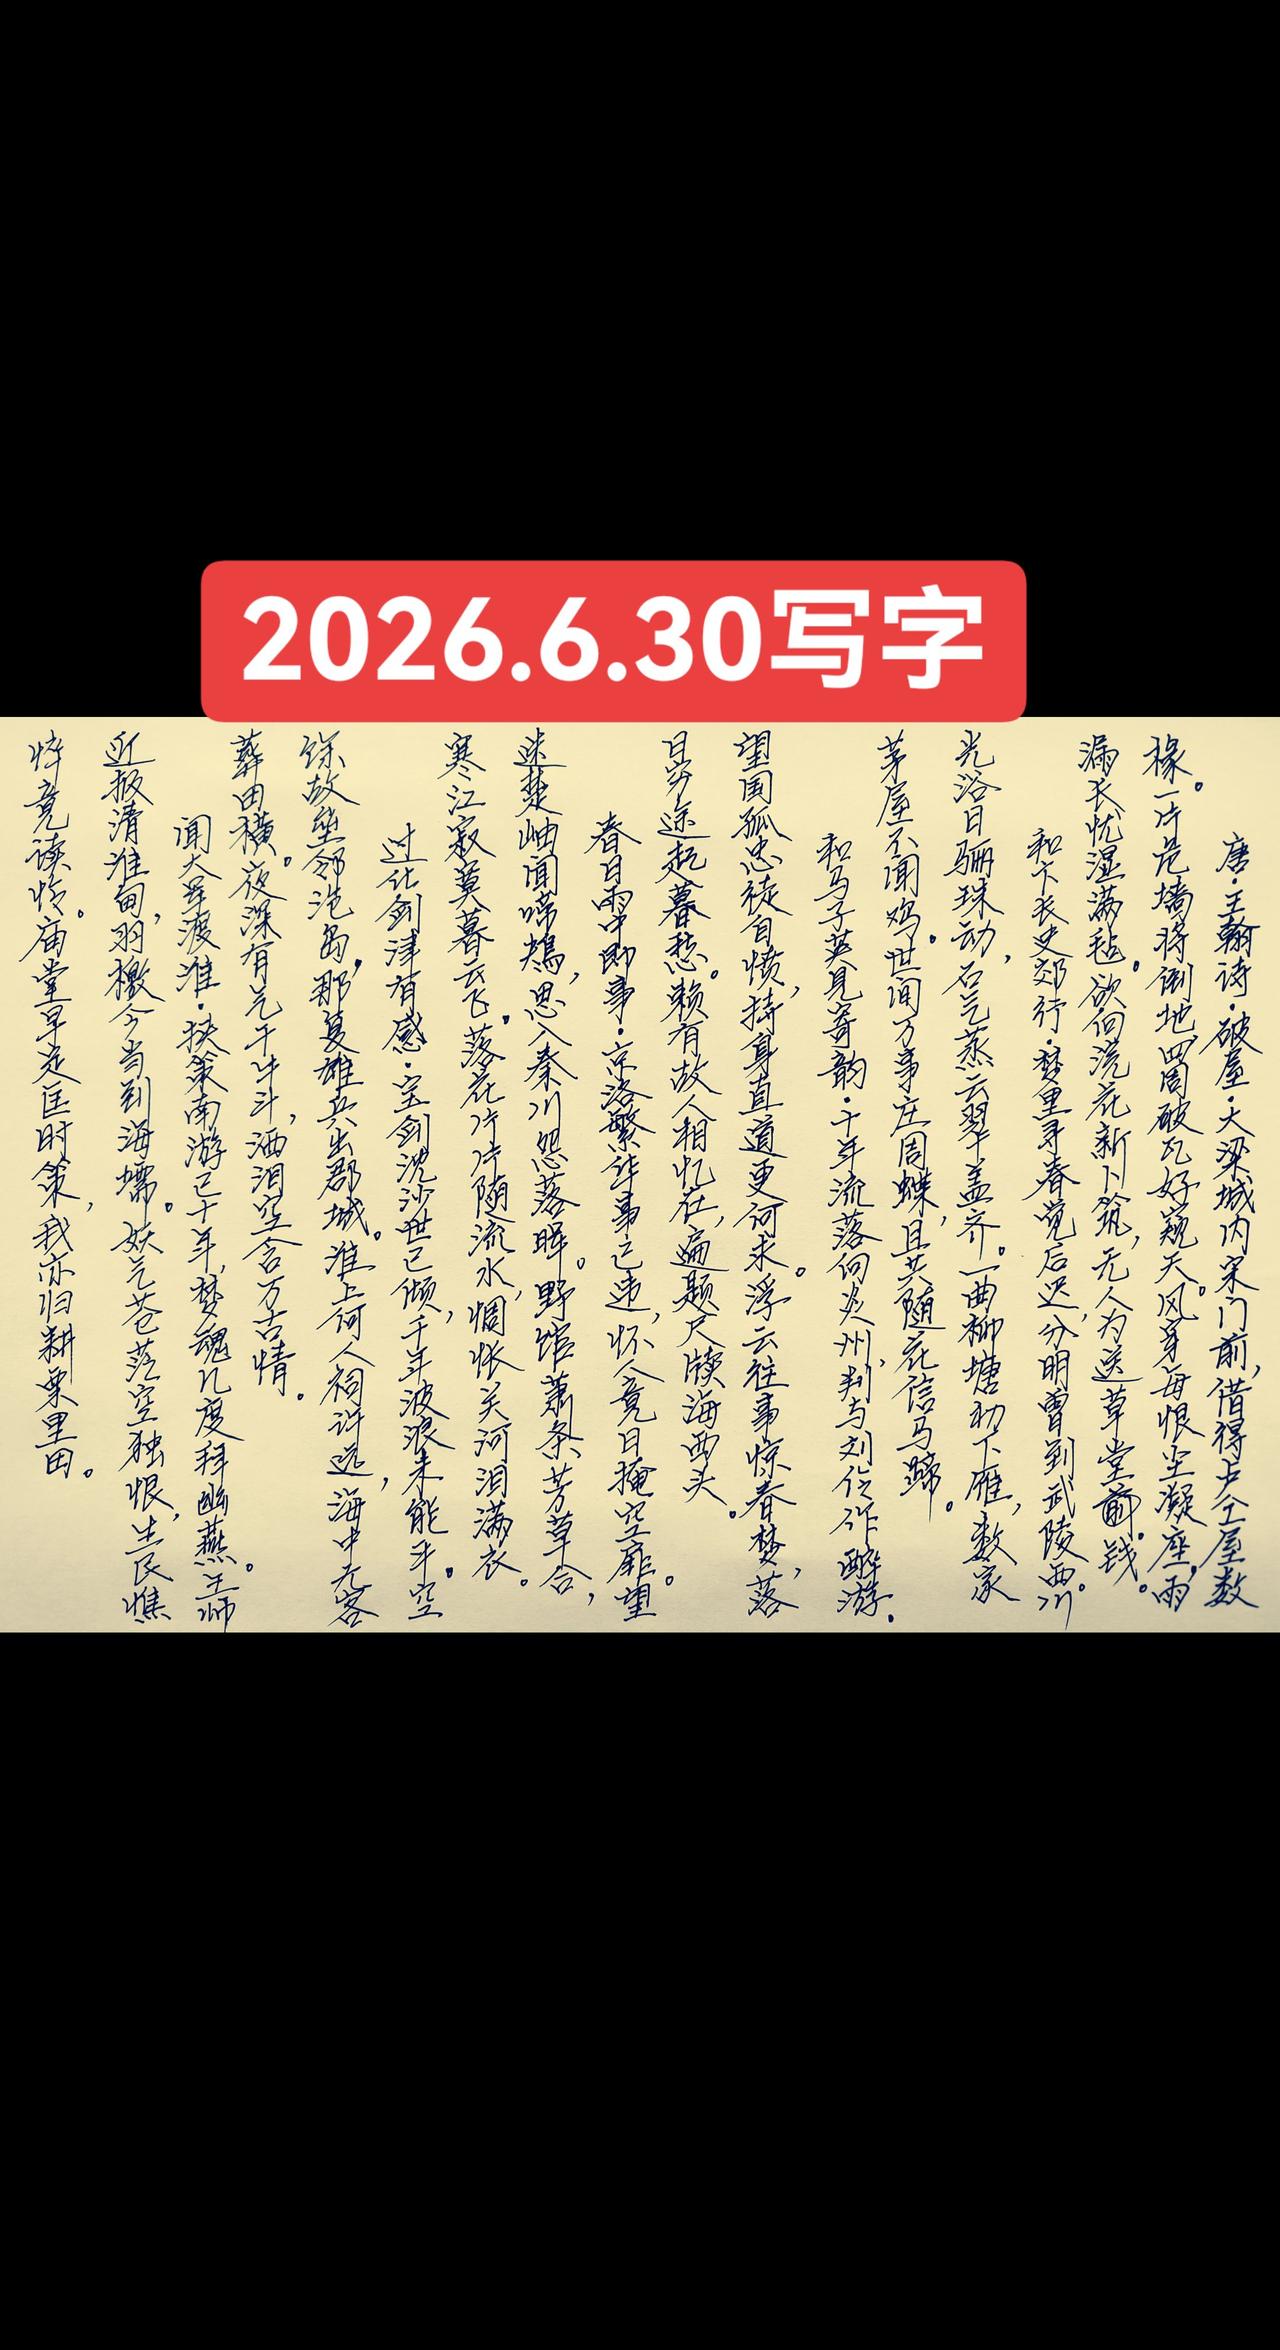 2026.6.30写字
唐·王翰诗·破屋·大梁城内宋门前，借得卢仝屋数
椽。一片危墙将倒地，四周破瓦好窥天。风穿每恨尘凝座，雨
漏长忧湿满毡。欲向浣花新卜筑，无人为送草堂前钱。
和卞长史郊行·梦里寻春觉后迟，分明曾到武陵西。川
光浴日骊珠动，石气蒸云翠盖齐。一曲柳塘初下雁，数家
茅屋不闻鸡。世间万事庄周蝶，且共随花信马蹄。
和马子英见寄韵·十年流落向炎州，判与刘伶作醉游。
望国孤忠徒自愤，持身直道更何求。浮云往事惊春梦，落
日穷途起暮愁。赖有故人相忆在，遍题尺牍海西头。
春日雨中即事·京洛繁华事已违，怀人竟日掩空扉。望
迷楚岫闻啼鴂，思入秦川怨落晖。野馆萧条芳草合，
寒江寂莫暮云飞。落花片片随流水，惆怅关河泪满衣。
过化剑津有感·宝剑沈沙世已倾，千年波浪未能平。空
馀故垒邻沧岛，那复雄兵出郡城。淮上何人祠许远，海中无客
葬田横。夜深有气干牛斗，洒泪空含万古情。
闻大军渡淮·挟策南游已十年，梦魂几度拜幽燕。王师
近报清淮甸，羽檄今当到海壖。妖气苍茫空独恨，生民憔
悴竟谁怜。庙堂早定匡时策，我亦归耕栗里田。